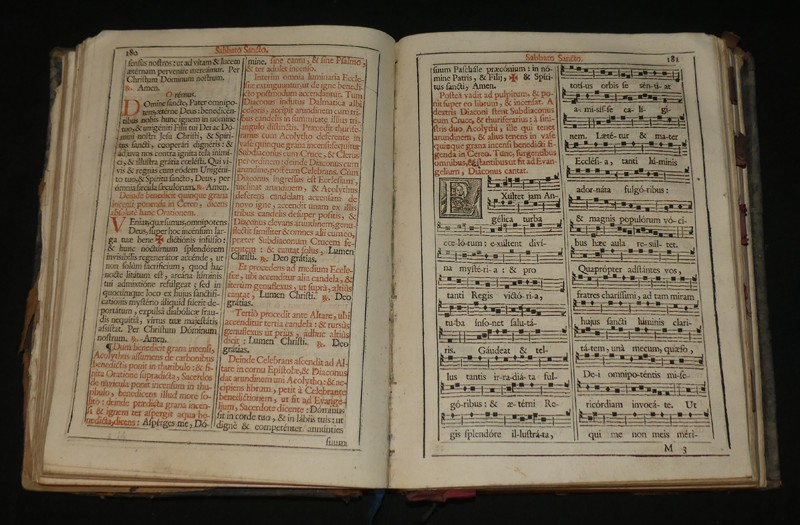 180
Sabbato Sancto.
sensis nostros tut ad vitam & lucem
æternam pervenire mereámur. Per
Christum Dóminum nostrum.
℟. Amen.
Orémus.
DOmine sancte, Pater omnipo-
tens, ætérne Deus: benedicén-
tibus nobis hunc ignem in nómine
tuo, & unigéniti Fílii tui Dei ac Dó-
mini nostri Jesu Christi, & Spíri-
tus sancti, cooperári dignéris: &
ádjuva nos contra igníta tela inimí-
ci, & illústra grátia cælésti. Qui vi-
vis & regnas cum eódem Unigéni-
to tuo, & Spíritu sancto, Deus, per
omnia sæcula sæculórum. ℟. Amen.
Deinde benedicit quinque grana
incensi ponenda in Cereo, dicens
absolute hanc Orationem.
VEniat, quæsumus, omnípotens
Deus, super hoc incénsum lar-
ga tuæ bene ✠ dictiónis infúsio:
& hunc noctúrnum splendórem
invisíbilis regenerátor accénde, ut
non solùm sacrifícium, quod hac
nocte litátum est, arcána lúminis
tui admixtióne refúlgeat; sed in
quocúmque loco ex hujus sanctifi-
catiónis mystério aliquid fúerit de-
portátum, expúlsa diabólicæ frau-
dis nequítia, virtus tuæ majestátis
assístat. Per Christum Dóminum
nostrum. ℟. Amen.
Dum benedicit grana incensi,
Acolythus assumens de carbonibus
benedictis ponit in thuribulo: & fi-
nita Oratione supradicta, Sacerdos
de navicula ponit incensum in thu-
ribulo, benedicens illud more so-
lito: deinde prædicta grana incen-
si & ignem ter aspergit aqua be-
nedicta, dicens: Aspérges me, Dó-
mine, sine cantu, & sine Psalmo,
& ter adolet incenso.
Interim omnia luminaria Eccle-
siæ extinguuntur, ut de igne benedi-
cto postmodum accendantur. Tum
Diaconus indutus Dalmatica albi
coloris, accipit arundinem cum tri-
bus candelis in summitate illius tri-
angulo distinctis. Præcedit thurife-
rarius cum Acolytho deferente in
vase quinque grana incensi: sequitur
Subdiaconus cum Cruce, & Clerus
per ordinem: deinde Diaconus cum
arundine, postremo Celebrans. Cum
Diaconus ingressus est Ecclesiam,
inclinat arundinem, & Acolythus
deferens candelam accensam de
novo igne, accendit unam ex illis
tribus candelis desuper positis, &
Diaconus elevans arundinem, genu-
flectit similiter & omnes alii cum eo,
præter Subdiaconum Crucem fe-
rentem: & cantat solus, Lumen
Christi. ℟. Deo grátias.
Et procedens ad medium Eccle-
siæ, ubi accenditur alia candela, &
iterum genuflexus, ut suprà, altiùs
cantat, Lumen Christi. ℟. Deo
grátias.
Tertiò procedit ante Altare, ubi
accenditur tertia candela: & rursùs
genuflexus ut priùs, adhuc altiùs
dicit: Lumen Christi. ℟. Deo
grátias.
Deinde Celebrans ascendit ad Al-
tare in cornu Epistolæ, & Diaconus
dat arundinem uni Acolytho: & ac-
cipiens librum, petit à Celebrante
benedictionem, ut fit ad Evange-
lium, Sacerdote dicente: Dóminus
sit in corde tuo, & in lábiis tuis: ut
dignè & competénter annúnties
suum
Sabbato Sancto.
181
suum Paschále præcónium: in nó-
mine Patris, & Fílij, ✠ & Spíri-
tus sancti, Amen.
Postea vadit ad pulpitum, & po-
nit super eo librum, & incensat. A
dextris Diaconi stent Subdiaconus
cum Cruce, & thuriferarius: à sini-
stris duo Acolythi, ille qui tenet
arundinem, & alius tenens in vase
quinque grana incensi benedicti fi-
genda in Cereo. Tunc, surgentibus
omnibus, & stantibus ut fit ad Evan-
gelium, Diaconus cantat.
EXúltet jam An-
gélica turba
cæ-ló-rum: exúltent diví-
na mysté-ri-a: & pro
tanti Regis victó-ri-a,
tu-ba ínso-net salu-tá-
ris. Gáudeat & tel-
lus tantis ir-ra-diá-ta ful-
gó-ribus: & æ-térni Re-
gis splendóre il-lustrá-ta,
totí-us orbis se sén-ti-at
a-mi-sís-se ca-lí-gi-
nem. Læté-tur & ma-ter
Ecclési-a, tanti lúminis
ador-náta fulgó-ribus:
& magnis populórum vó-ci-
bus hæc aula re-súl-tet.
Quaprópter adstántes vos,
fratres charíssimi, ad tam miram
hujus sancti lúminis clari-
tá-tem, unà mecum, quæso,
De-i omnipo-téntis mi-se-
ricórdiam invocá-te. Ut
qui me non meis méri-
M 3